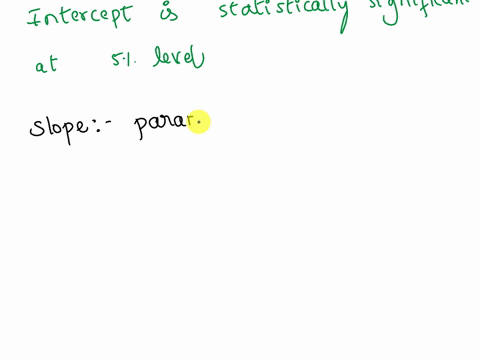 Intercept is statistically significan
at 5%. level
Slope:- param